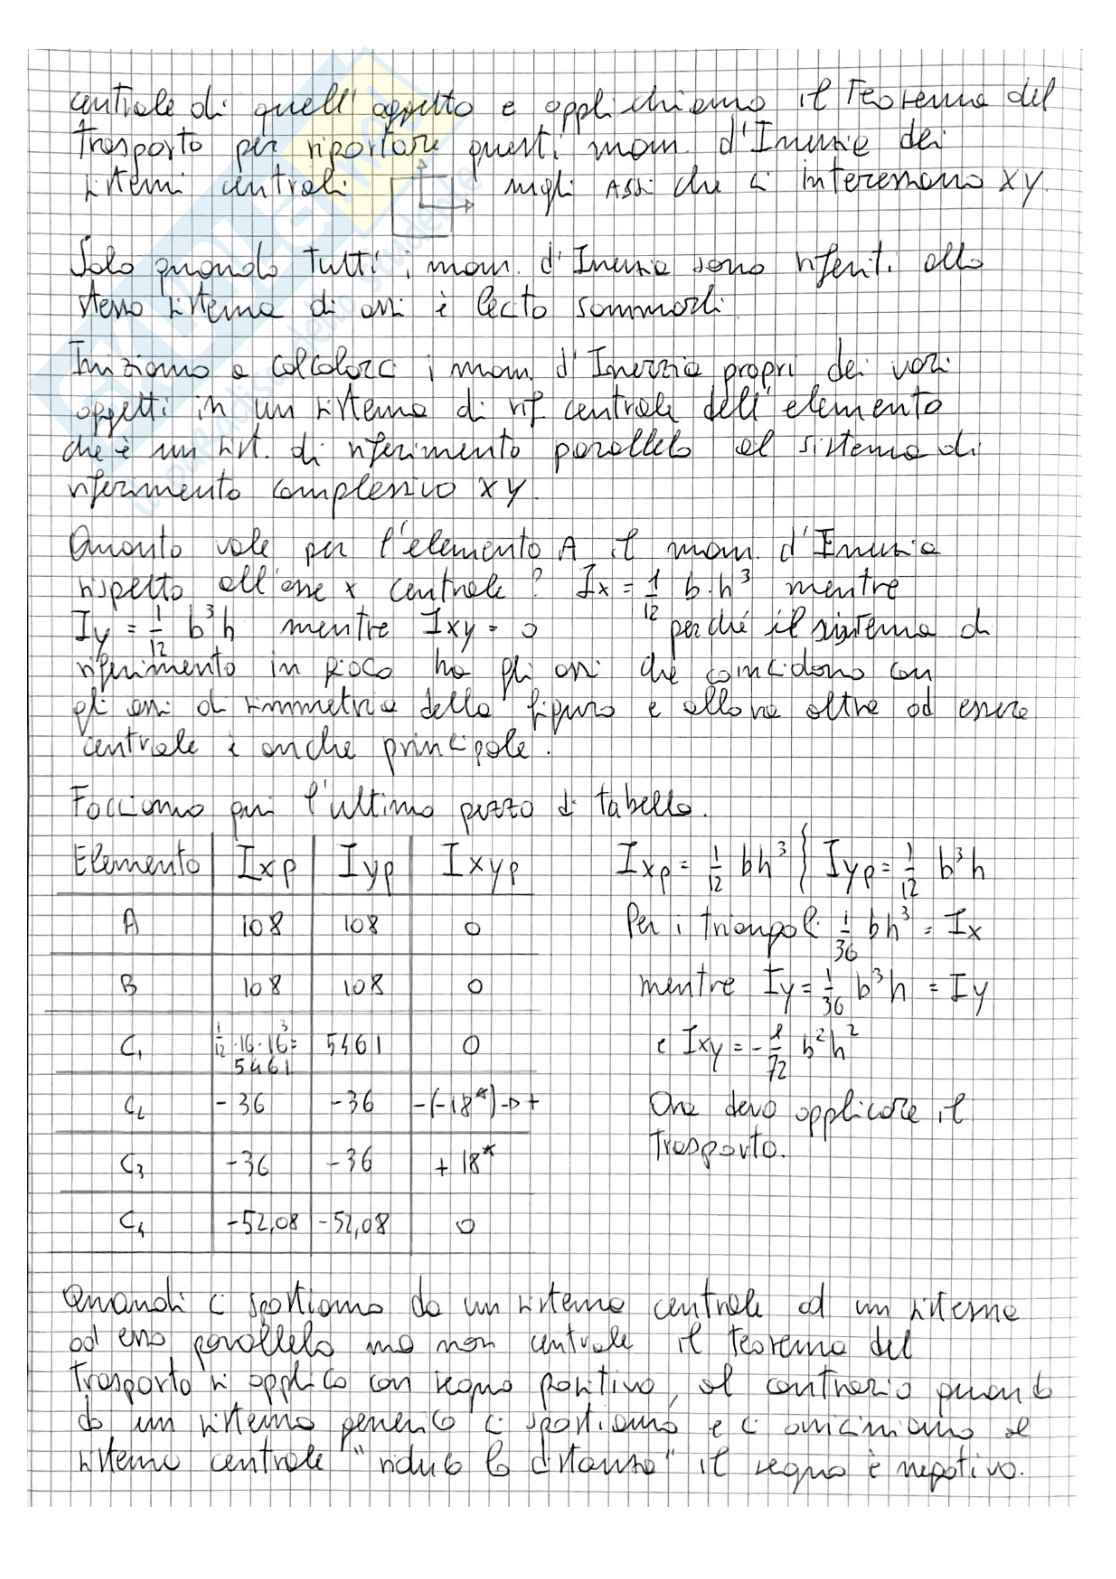 centrale di quell'oggetto e applichiamo il Teorema del
Trasporto per riportare questi mom. d'Inerzia dei
sistemi centrali sugli Assi che ci interessano xy.
Solo quando Tutti i mom. d'Inerzia sono riferiti allo
stesso sistema di assi è lecito sommarli
Iniziamo a calcolarci i mom. d'Inerzia propri dei vari
oggetti in un sistema di rif centrale dell'elemento
che è un sist. di riferimento parallelo al sistema di
riferimento complessivo xy.
Quanto vale per l'elemento A il mom. d'Inerzia
rispetto all'asse x centrale? Ix = 1/12 b·h³ mentre
Iy = 1/12 b³h mentre Ixy = 0 perché il sistema di
riferimento in gioco ha gli assi che coincidono con
gli assi di simmetria della figura e allora oltre ad essere
centrale è anche principale.
Facciamo qui l'ultimo pezzo di tabella.
Elemento | Ixp | Iyp | Ixyp Ixp = 1/12 bh³ } Iyp = 1/12 b³h
A 108 108 0 Per i triangoli 1/36 bh³ = Ix
B 108 108 0 mentre Iy = 1/36 b³h = Iy
C₁ 1/12·16·16³= 5461 5461 0 e Ixy = -1/72 b²h²
C₂ -36 -36 -(-18*)-▷+ Ora devo applicare il
Trasporto.
C₃ -36 -36 +18*
C₄ -52,08 -52,08 0
Quando ci spostiamo da un sistema centrale ad un sistema
ad esso parallelo ma non centrale il teorema del
Trasporto si applica con segno positivo, al contrario quando
da un sistema generico ci spostiamo e ci avviciniamo al
sistema centrale "riduco la distanza" il segno è negativo.